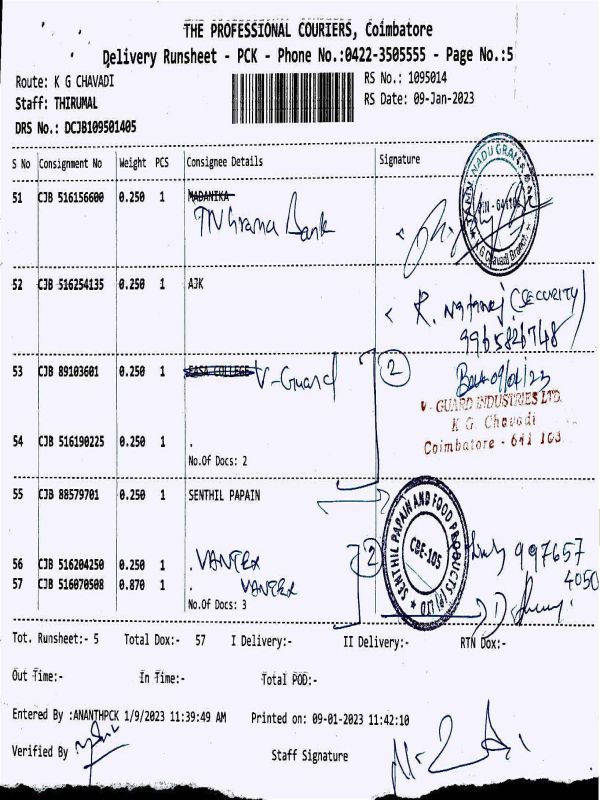 THE PROFESSIONAL COURIERS, Coimbatore
Delivery Runsheet - PCK - Phone No.:0422-3505555 - Page No.:5
Route: K G CHAVADI
RS No.: 1095014
Staff: THIRUMAL
RS Date: 09-Jan-2023
DRS No.: DCJB109501405
S No Consignment No Weight PCS Consignee Details Signature
51 CJB 516156600 0.250 1 MADANIKA
TN Grama Bank
TAMIL NADU GRAMA
K G Chavadi Branch
52 CJB 516254135 0.250 1 AJK
R. Nataraj (SECURITY)
9965826748
53 CJB 89103601 0.250 1 EASA COLLEGE V-Guard
2
09/01/23
V-GUARD INDUSTRIES LTD.
K G. Chavadi
Coimbatore - 641 103
54 CJB 516190225 0.250 1 .
No.Of Docs: 2
55 CJB 88579701 0.250 1 SENTHIL PAPAIN
SENTHIL PAPAIN AND FOOD PRODUCTS (P) LTD
CBE-105
56 CJB 516204250 0.250 1 . VANTEX
2
997657
4050
57 CJB 516070508 0.870 1 VANTEX
No.Of Docs: 3
Tot. Runsheet:- 5 Total Dox:- 57 I Delivery:- II Delivery:- RTN Dox:-
Out Time:- In Time:- Total POD:-
Entered By :ANANTHPCK 1/9/2023 11:39:49 AM Printed on: 09-01-2023 11:42:10
Verified By
Staff Signature